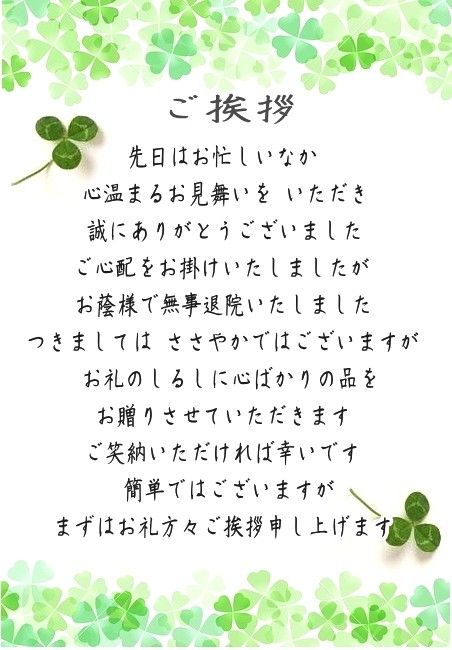 ご挨拶
先日はお忙しいなか
心温まるお見舞いを いただき
誠にありがとうございました
ご心配をお掛けいたしましたが
お蔭様で無事退院いたしました
つきましては ささやかではございますが
お礼のしるしに心ばかりの品を
お贈りさせていただきます
ご笑納いただければ幸いです
簡単ではございますが
まずはお礼方々ご挨拶申し上げます